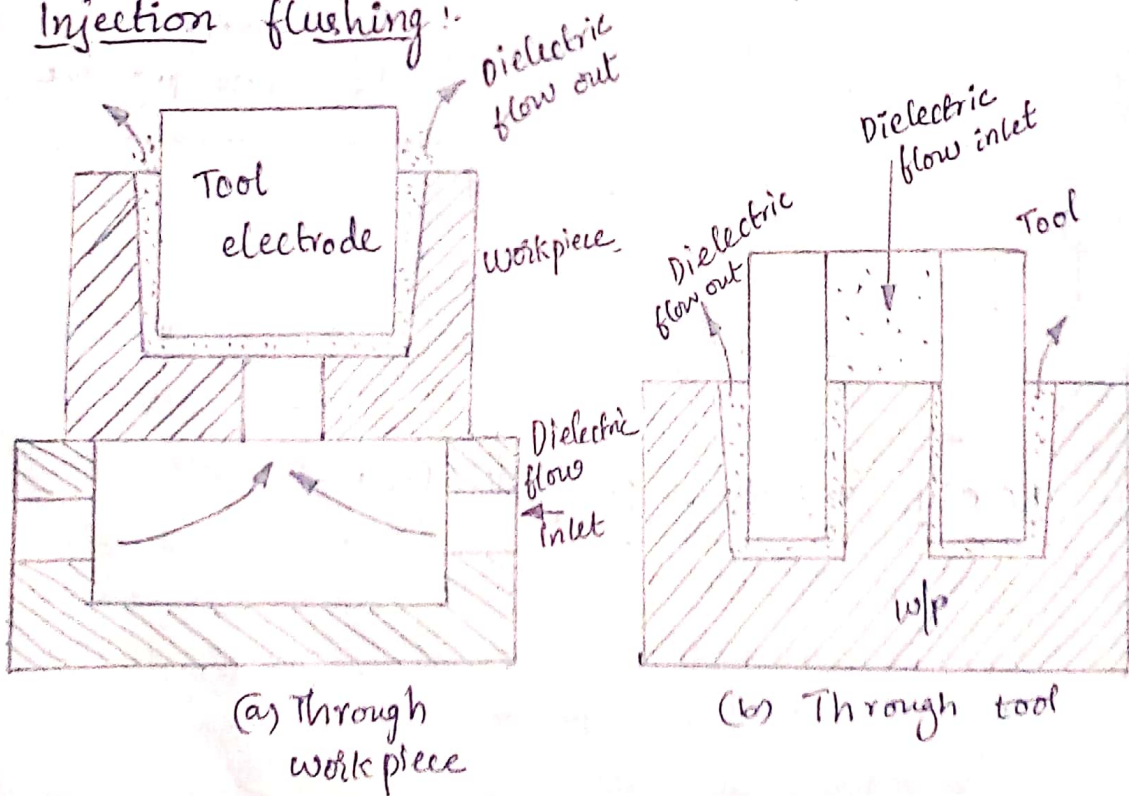 Injection flushing :-
Dielectric
flow out
Tool
electrode
Workpiece
Dielectric
flow
inlet
(a) Through
workpiece
Dielectric
flow inlet
Dielectric
flow out
Tool
W/P
(b) Through tool